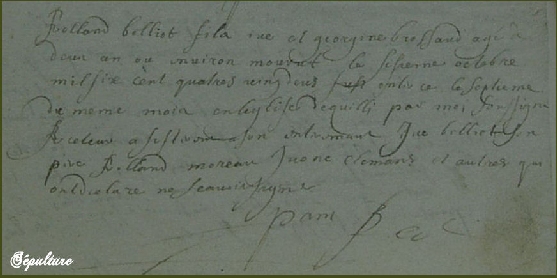 Rolland belliot fils a jue et georgine brossaud agé d
deux an ou enuiron mourut le sisieme octobre
mil six cent quatres vingt deus fust enterre le septieme
du meme mois en leglise de quilli par moi soussigne
Recteur assisterent a son enterrement Jue belliot son
pere Rolland moreau Juone Clemans et autres qui
ont declare ne scauoir signe
Sépulture